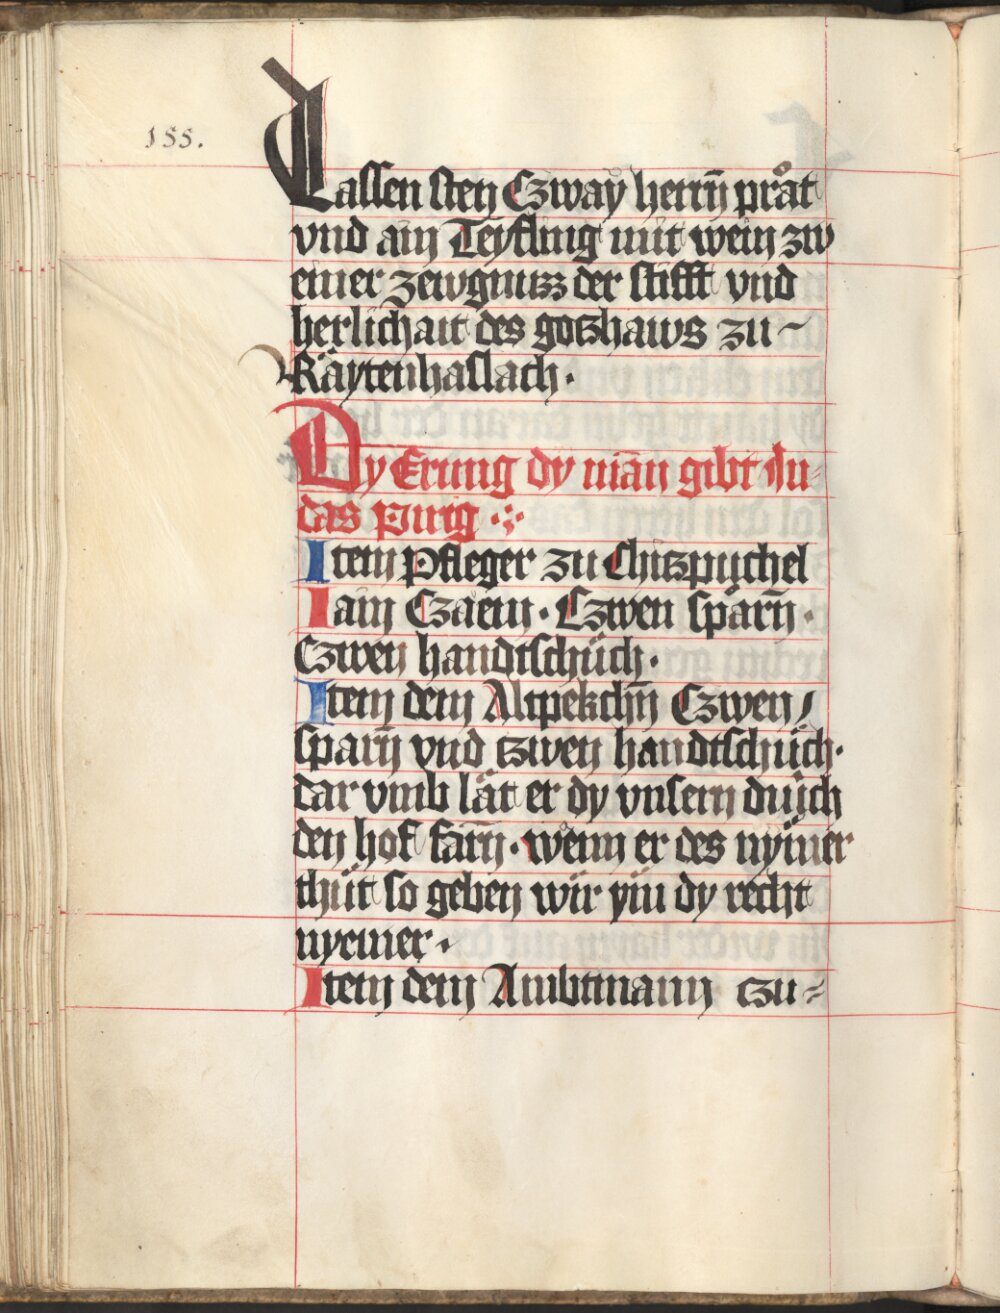 155.
Lassen sten Czway herrn̄ prǎt
vnd ain Teyfling mit wein zw
einer zewgnuss der stifft vnd
herlichait des gotzhaws zu ~
Räytenhaslach.
Dy Erung dy man̄ gibt Jn
das Purg
Item Pfleger zu Chitzpüchel
I ain Czaem. Czwen sparn̄.
Czwen handtschüch.
Item dem Altpekchn̄ Czwen /
sparn̄ vnd tzwen handtschüch.
dar vmb lät er dy vnsern durch
den hof farn̄. wenn er des nymer
thüt so geben wir ym dy recht
nyemer.
Item dem Ambtmann tzu